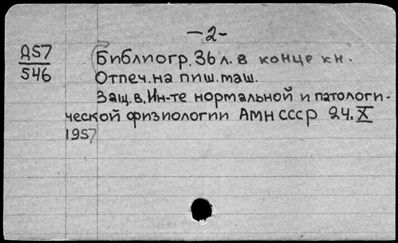 -2-
А57
546
Библиогр. 36 л. в конце кн.
Отпеч. на пиш. маш.
Защ. в. Ин-те нормальной и патологи-
ческой физиологии АМН СССР 24. X
1957